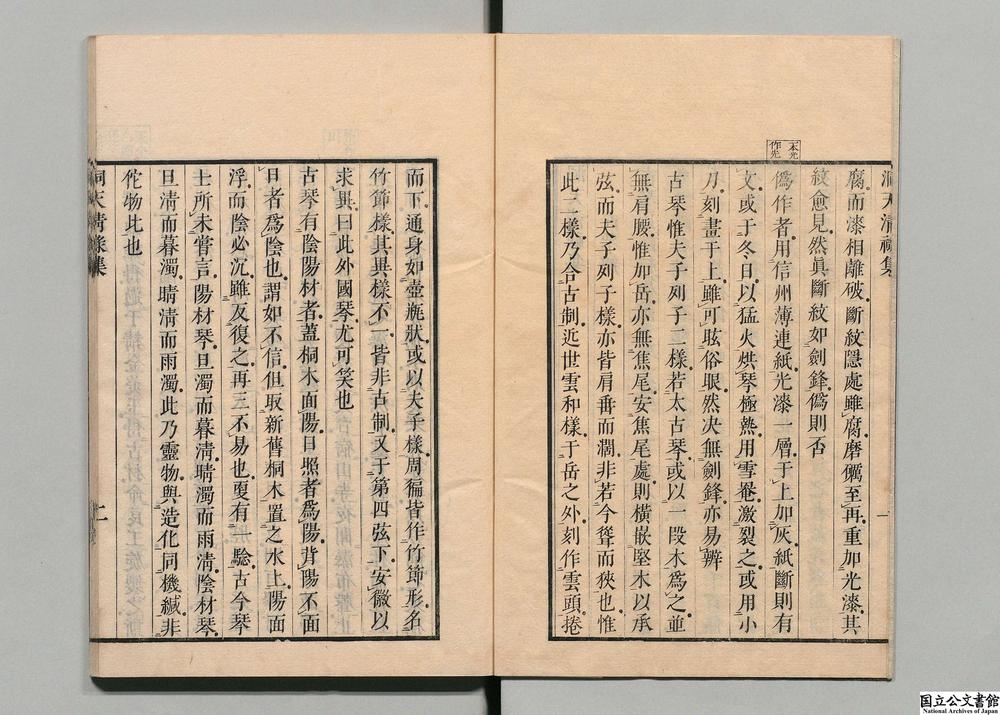 洞天清祿集
腐而漆相離破斷紋隱處雖腐磨礪至再重加光漆其
紋愈見然眞斷紋如劍鋒僞則否
僞作者用信州薄連紙光漆一層于上加灰紙斷則有
一本光作先
文或于冬日以猛火烘琴極熱用雪罨激裂之或用小
刀刻畫于上雖可眩俗眼然决無劍鋒亦易辨
古琴惟夫子列子二樣若太古琴或以一段木爲之並
無肩腰惟加岳亦無焦尾安焦尾處則橫嵌堅木以承
弦而夫子列子樣亦皆肩垂而濶非若今聳而狹也惟
此二樣乃合古制近世雲和樣于岳之外刻作雲頭捲
而下通身如壺瓶狀或以夫子樣周徧皆作竹節形名
竹節樣其異樣不一皆非古制又于第四弦下安徽以
求異曰此外國琴尤可笑也
古琴有陰陽材者蓋桐木面陽日照者爲陽背陽不面
日者爲陰也謂如不信但取新舊桐木置之水上陽面
浮而陰必沉雖反復之再三不易也更有一驗古今琴
士所未嘗言陽材琴旦濁而暮淸晴濁而雨淸陰材琴
旦淸而暮濁晴淸而雨濁此乃靈物與造化同機緘非
佗物比也
洞天淸祿集
二
国立公文書館
National Archives of Japan